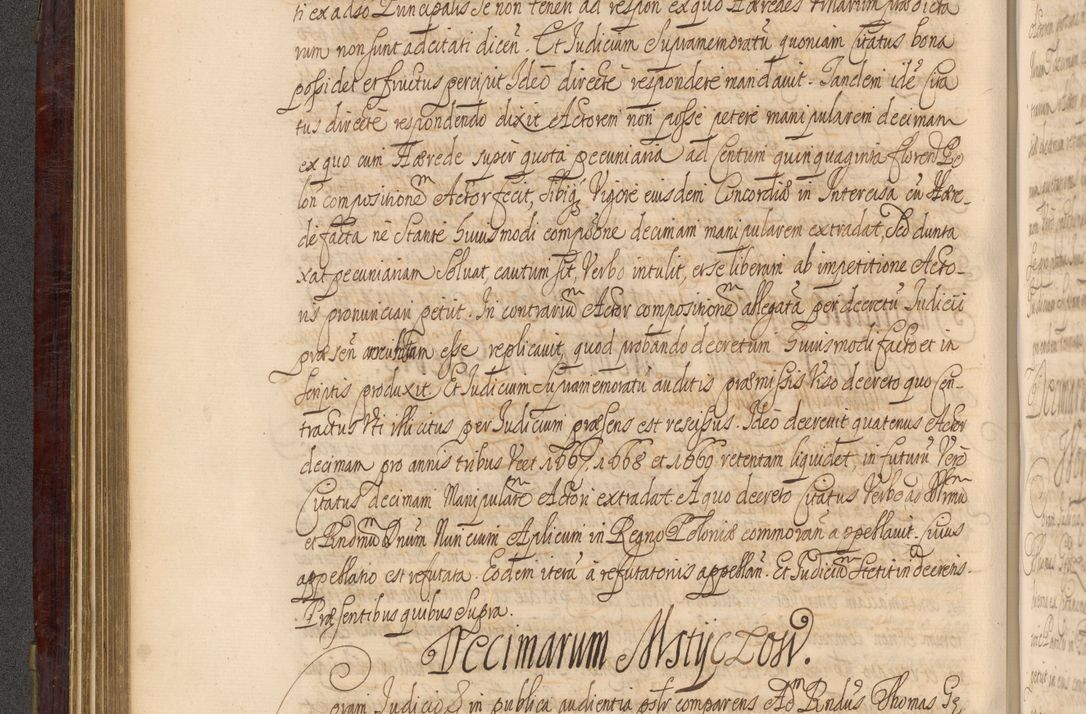 ti ex adso Principalis se non teneri ad respon ex quo Hæredes trinarum prædicta
rum non sunt adcitati diceñ. Et Judicium Supramemoratũ quoniam Citatus bona
possidet et fructus percipit Ideò directè respondere mandavit. Tandem idẽ Cita
tus directè respondendo dixit Actorem non posse petere manipularem decimam
ex quo cum Hærede super quota pecuniaria ad Centum quinquaginta floren Po
lon compositionem Actor fecit, sibique Vigore eiusdem Concordiæ in Intercisa cũ Hære-
de facta ne stante huiusmodi compõne decimam manipularem extradat, Sed dunta
xat pecuniariam Solvat, cautum sit, Verbo intulit, et se liberum ab impetitione Acto-
ris pronunciari petiit. In contrarium Actor compositionem allegatã per decretũ Judicii
præsen esse replicavit, quod probando decretum huiusmodi facto et in
scriptis produxit. Et Judicium Supramemoratũ auditis præmissis Viso decreto quo Con-
tractus Uti illicitus per Judicium præsens est rescissus. Ideò decrevit quatenus Actor
decimam pro annis tribus Vcet 1667, 1668 et 1669 retentam liquidet, in futurũ Verò
Citatus decimam Manipularem Actori extradat. A quo decreto Citatus Verbo ad Illrmũ
et Rndmum Dnum Nuncium Aplicum in Regno Poloniæ commoran appellavit. Cuius
appellatio est refutata. Eodem iterũ à refutatoriis appellañ. Et Judicium stetit in decretis.
Præsentibus quibus supra.
Decimarum Mstyczow.
Coram Judicio & in publica audientia pstr comparens Adm Rndus Thomas Ge